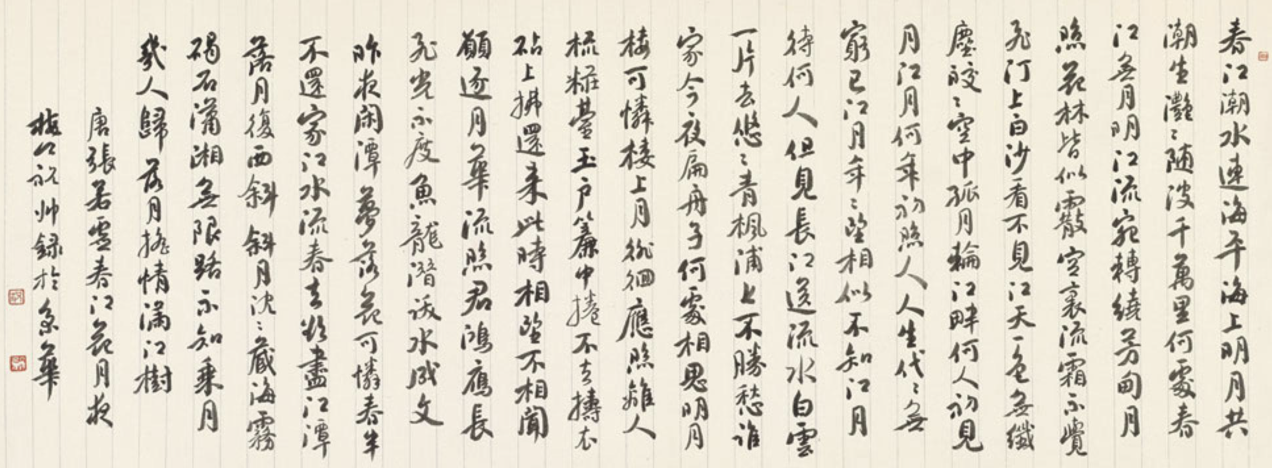 春江潮水連海平海上明月共
潮生灩〻随波千萬里何處春
江無月明江流宛轉繞芳甸月
照花林皆似霰空裏流霜不覺
飛汀上白沙看不見江天一色無纖
塵皎〻空中孤月輪江畔何人初見
月江月何年初照人人生代〻無
窮已江月年〻望相似不知江月
待何人但見長江送流水白雲
一片去悠〻青楓浦上不勝愁誰
家今夜扁舟子何處相思明月
樓可憐樓上月徘徊應照離人
梳粧臺玉户簾中捲不去擣衣
砧上拂還来此時相望不相聞
願逐月華流照君鴻雁長
飛光不度魚龍潛躍水成文
昨夜閑潭夢落花可憐春半
不還家江水流春去欲盡江潭
落月復西斜斜月沈〻藏海霧
碣石瀟湘無限路不知乘月
幾人歸落月搖情滿江樹
唐張若虛春江花月夜
祝帅録於京華